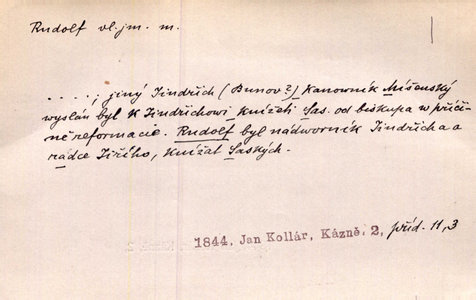 Rudolf vl. jm. m.
....; jiný Jindřich (Bunov?) kanowník Mišenský
wyslán byl k Jindřichowi knížeti Sas. od biskupa w příči-
ně reformacie. Rudolf byl nádworník Jindřicha a
rádce Jiřího, knížat Saských.
1844, Jan Kollár, Kázně. 2, příd. 11,3